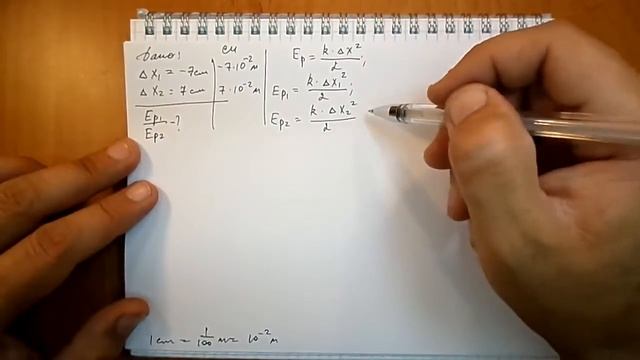 Дано:
Δx₁ = -7 cm
Δx₂ = 7 cm
Ep₁/Ep₂ - ?
СИ
-7·10⁻² м
7·10⁻² м
Ep = k·Δx²/2;
Ep₁ = k·Δx₁²/2;
Ep₂ = k·Δx₂²/2
1 cm = 1/100 м = 10⁻² м